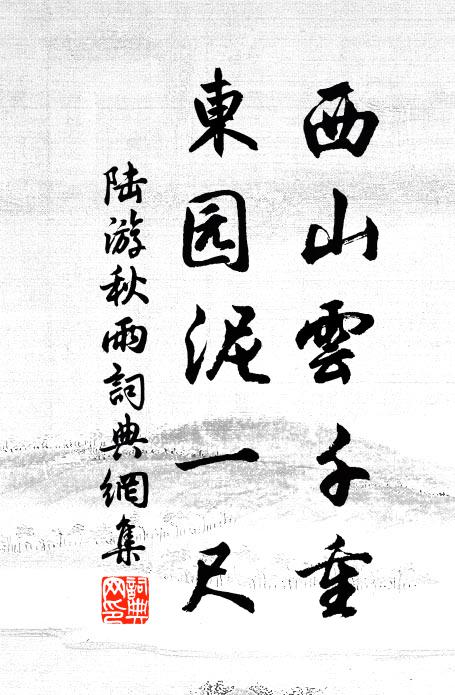 西山雲千重
東园泥一尺
陆游秋雨詞典網集
詞典网印